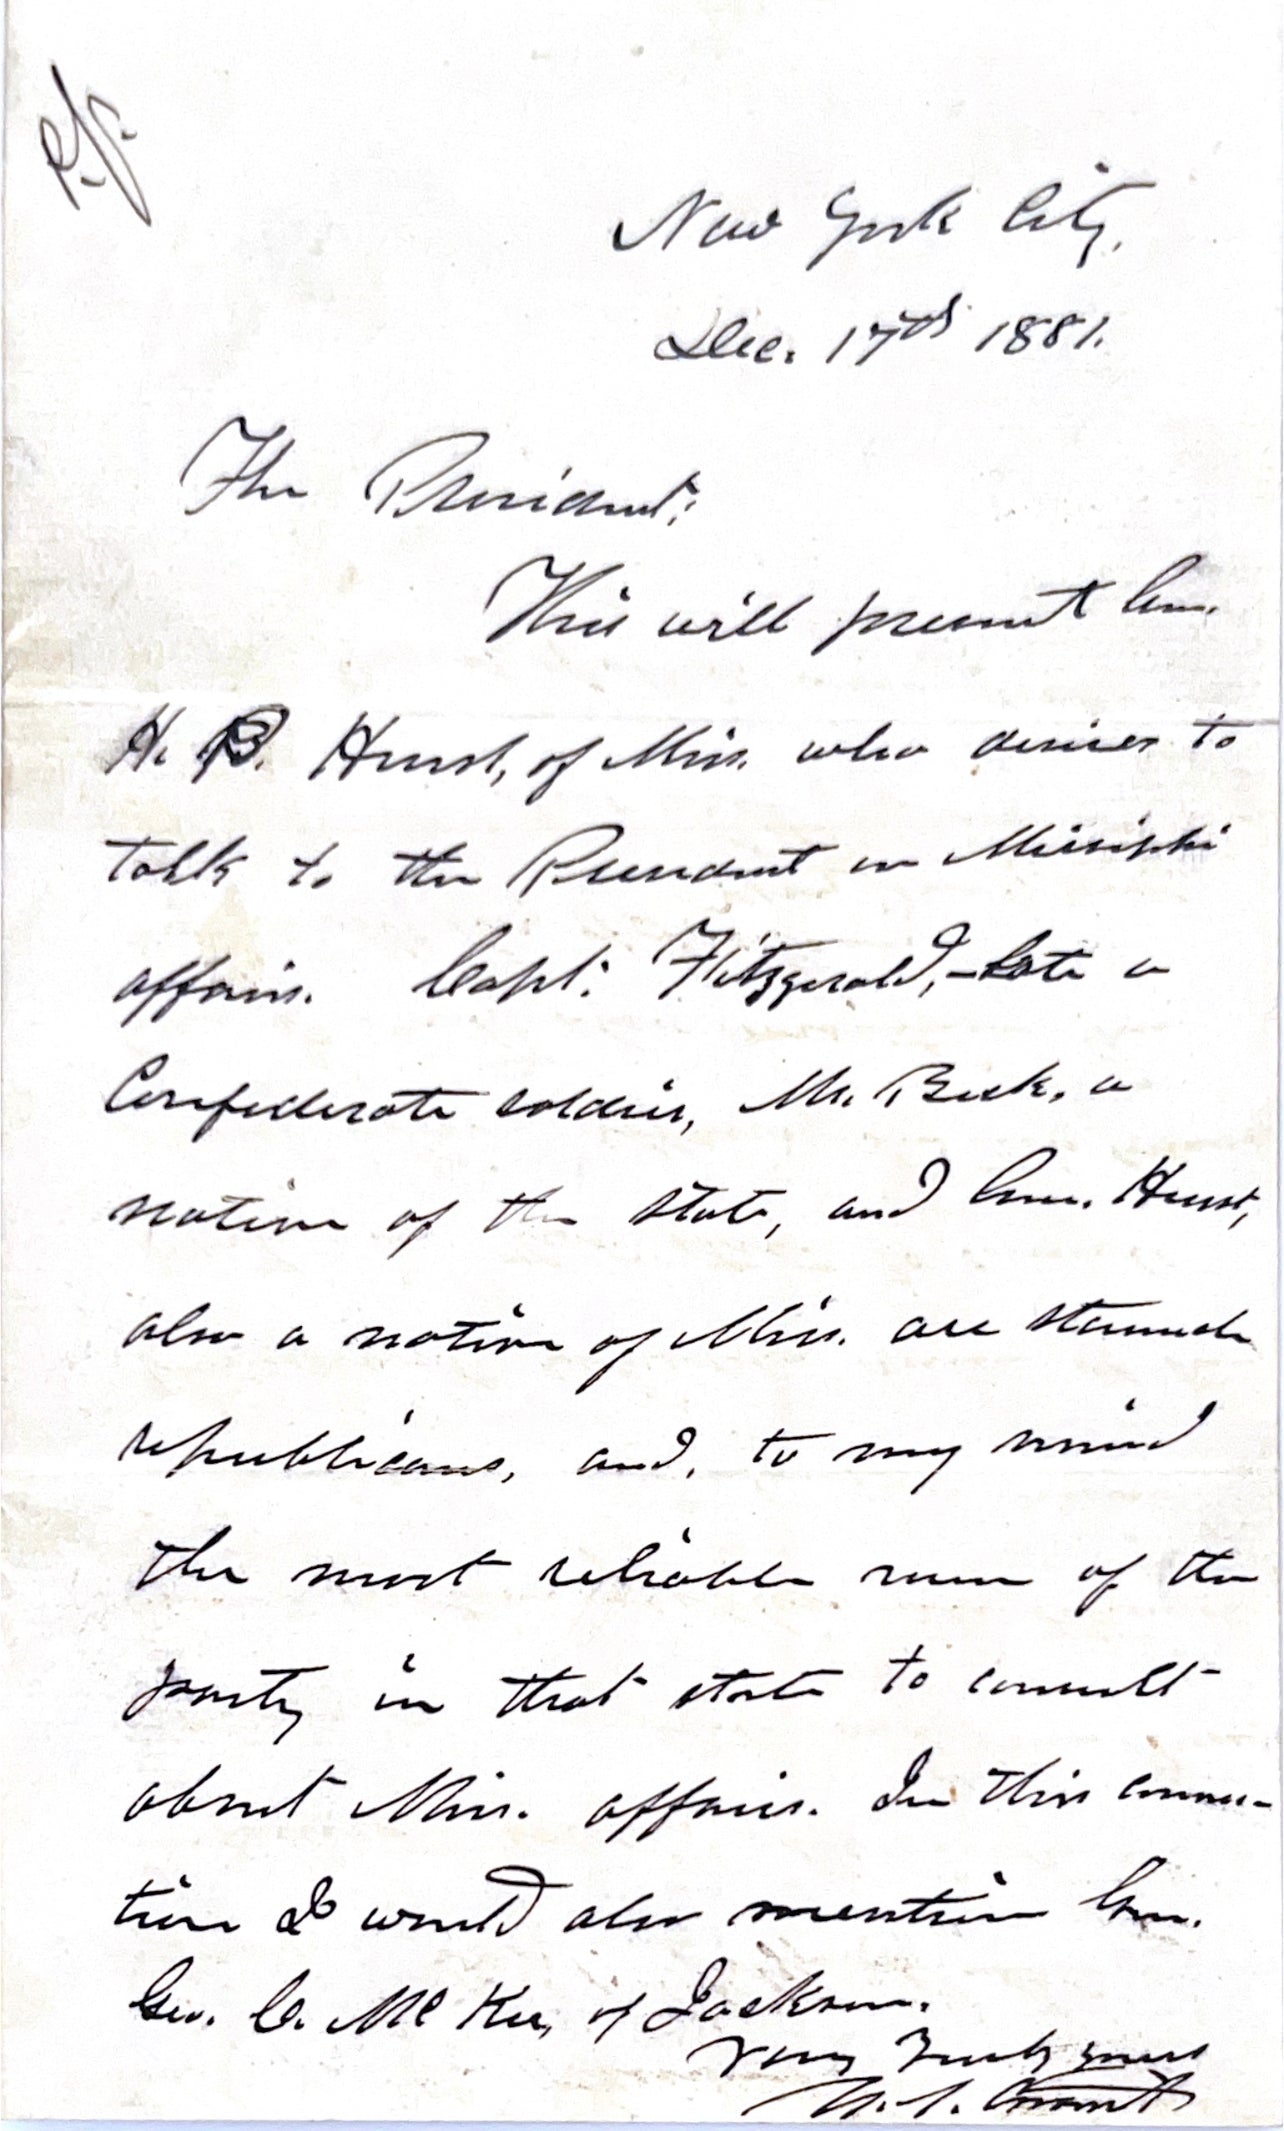 New York City,
Dec. 17th 1881.
The President:
This will present Gen.
H. B. Hurst, of Miss. who desires to
talk to the President on Missisippi
affairs. Capt. Fitzgerald, late a
Confederate soldier, Mr. Beck, a
native of the state, and Gen. Hurst,
also a native of Miss. are staunch
republicans, and, to my mind
the most reliable men of the
party in that state to consult
about Miss. affairs. In this connec-
tion I would also mention Gen.
Geo. C. McKee, of Jackson.
Very Truly yours
U. S. Grant